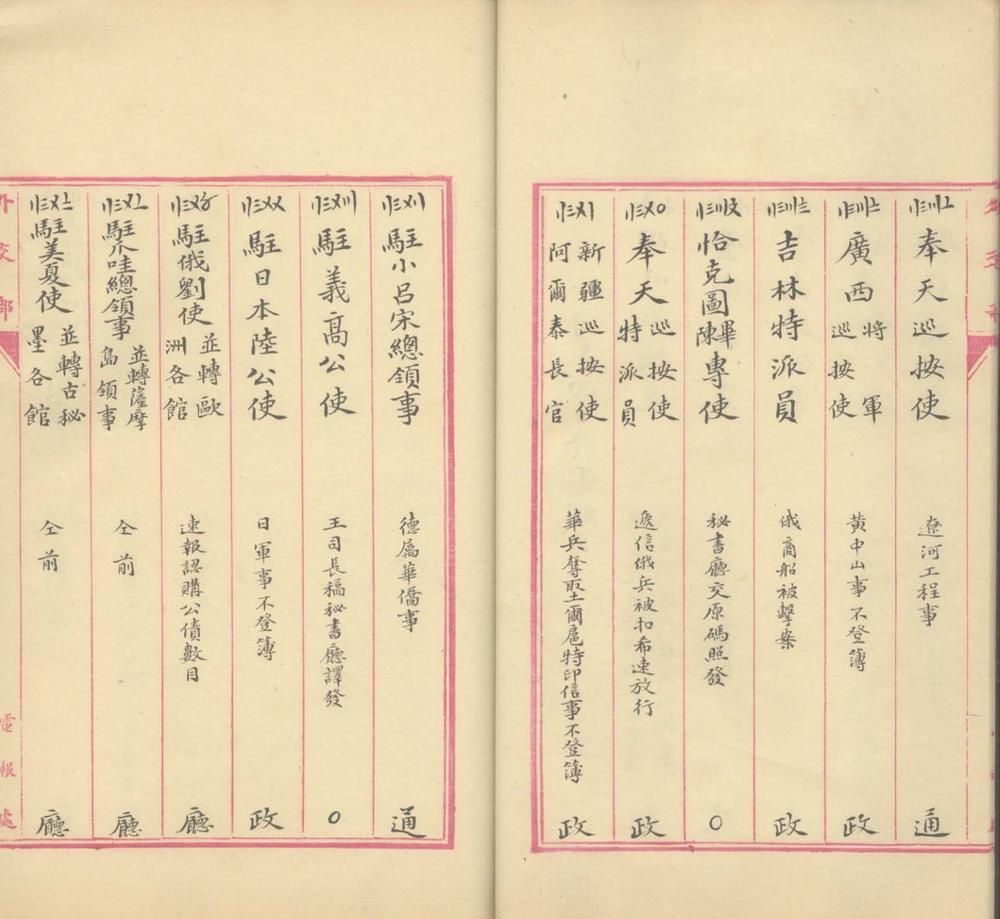 奉天巡按使 遼河工程事 通
廣西將軍巡按使 黃中山事不登簿 政
吉林特派員 俄商船被擊案 政
恰克圖畢陳專使 秘書廳交原碼照發 〇
奉天巡按使特派員 遞信俄兵被扣希速放行 政
新疆巡按使阿爾泰長官 華兵奪取土爾扈特印信事不登簿 政
駐小呂宋總領事 德屬華僑事 通
駐義高公使 王司長稿秘書廳譯發 〇
駐日本陸公使 日軍事不登簿 政
駐俄劉使並轉歐洲各館 速報認購公債數目 廳
駐爪哇總領事並轉薩摩島領事 仝前 廳
駐美夏使並轉古秘墨各館 仝前 廳
外交部 電報處